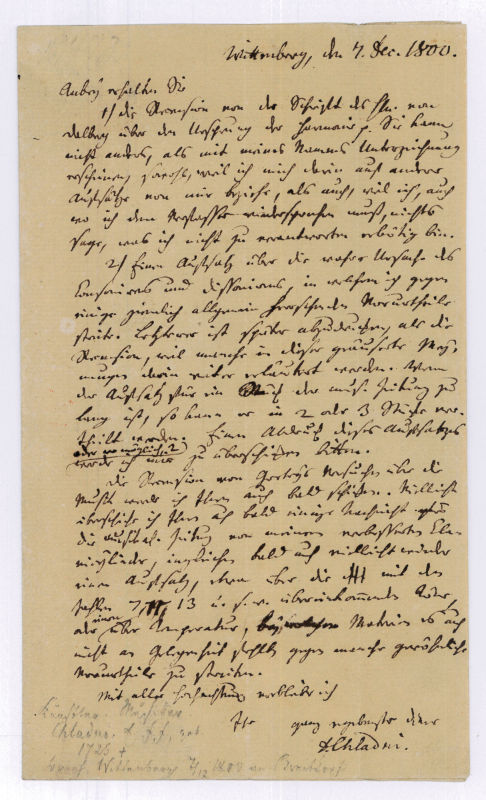 Wittenberg, den 7. Dec. 1800.
Anbey erhalten Sie
1) die Recension von der Schrift des Hn. von
Dalberg über den Ursprung der Harmonie p. Sie kann
nicht anders, als mit meines Namens Unterzeichnung
erscheinen, sowohl, weil ich mich darin auf andere
Aufsätze von mir beziehe, als auch, weil ich, auch
wo ich dem Verfasser widersprechen muß, nichts
sage, was ich nicht zu verantworten erbötig bin.
2) Einen Aufsatz über die wahre Ursache des
Consonirens und Dissonirens, in welchem ich gegen
einige ziemlich allgemein herrschende Vorurtheile
streite. Letzterer ist später abzudrucken, als die
Recension, weil manche in dieser geäußerte Mey-
nungen darin weiter erläutert werden. Wenn
der Aufsatz für ein Stück der mus. Zeitung zu
lang ist, so kann er in 2 oder 3 Stücke ver-
theilt werden. Einen Abdruck dieses Aufsatzes
oder wo möglich 2
werde ich mir zu überschicken bitten.
Die Recension von Versuchen über die
Musik werde ich Ihnen auch bald schicken. Vielleicht
überschicke ich Ihnen auch bald einige Nachricht für
die musikal. Zeitung von meinem verbesserten Cla-
vicylinder, ingleichen bald auch vielleicht wieder
einen Aufsatz, etwa über die mit den
Zahlen 7, 11, 13 u. s. w. übereinkommenden Töne,
oder einen über Temperatur, bey welchen Materien es auch
nicht an Gelegenheit fehlt gegen manche gewöhnliche
Vorurtheile zu streiten.
Mit aller Hochachtung verbleibe ich
Ihr ganz ergebenster Diener
E. Chladni.
Chladni, E. F. F., geb.
1756 †
Wittenberg 7/12 1800 an Breitkopf